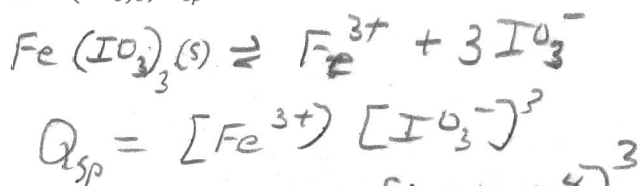 Fe(IO₃)₃(s) ⇌ Fe³⁺ + 3 IO₃⁻
Q_sp = [Fe³⁺) [IO₃⁻)³